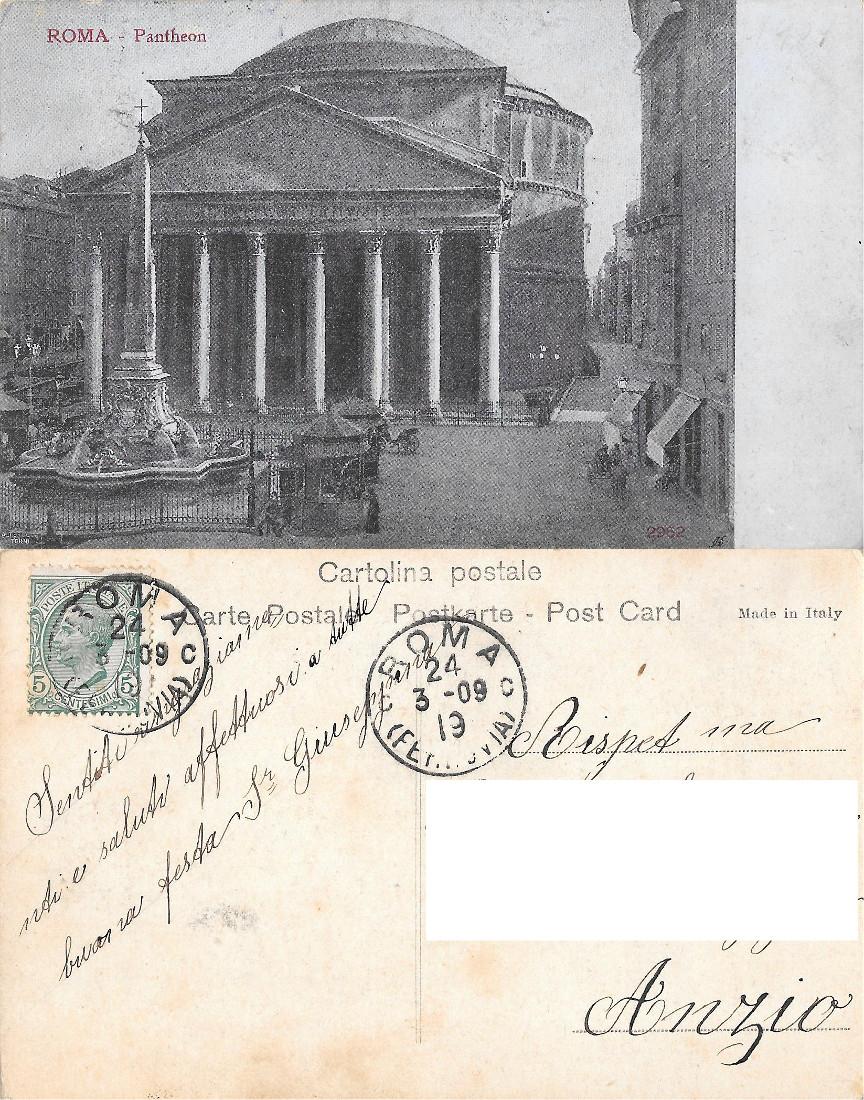 ROMA - Pantheon
2962
Cartolina postale
Carte Postale Postkarte - Post Card
Made in Italy
POSTE
5 5
CENTESIMI
ROMA
24
3 -09 C
ROMA
24
3 -09 C
19
(FERROVIA)
Sentiti
nti e saluti affettuosi a tutte
buona festa Sr Giuseppina
Rispet ma
Anzio